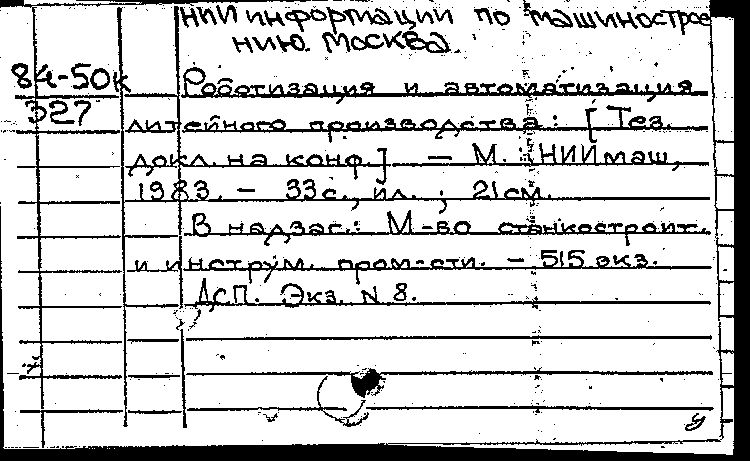 НИИ информации по машинострое
нию. Москва.
84-50к
327
Роботизация и автоматизация
литейного производства: [Тез.
докл. на конф.] — М.: НИИмаш,
1983. - 33с., ил.; 21см.
В надзаг.: М-во станкостроит.
и инструм. пром-сти. - 515 экз.
ДСП. Экз. N 8.